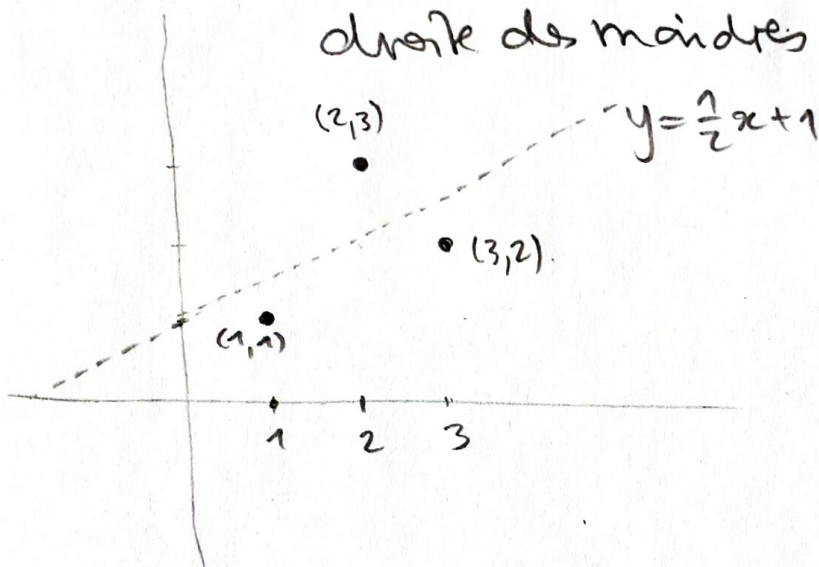 droite des moindres
(2,3)
y = 1/2 x + 1
(3,2)
(1,1)
1 2 3